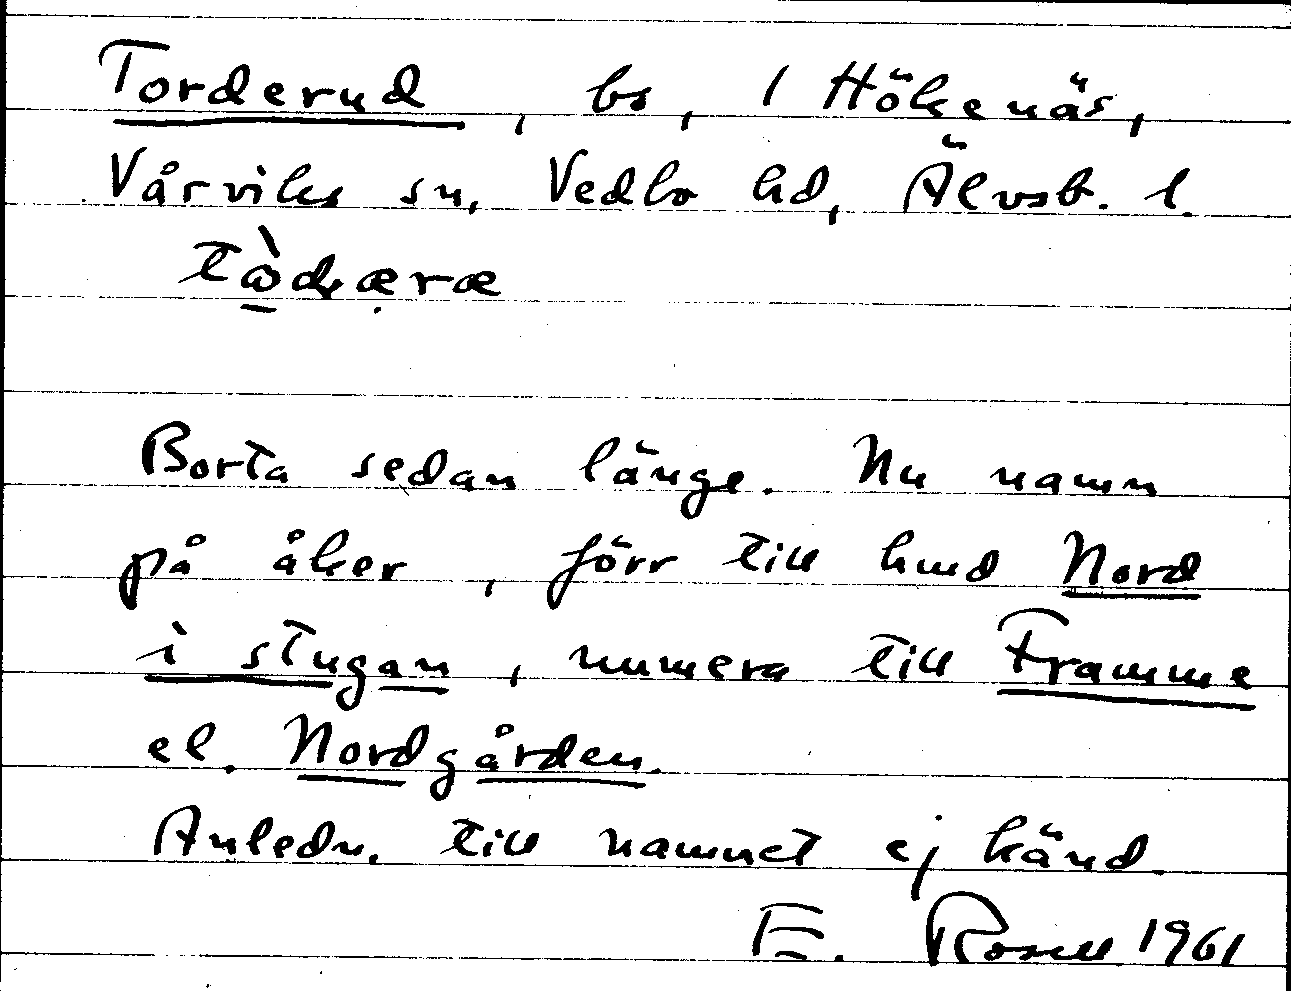 Torderud, bs, 1 Hökenäs,
Vårviks sn, Vedbo hd, Älvsb. l.
Borta sedan länge. Nu namn
på åker, förr till hmd Nord
i stugan, numera till Framme
el. Nordgården.
Anledn. till namnet ej känd.
E. Rosell 1961